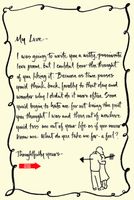 My Love -
I was going to write you a witty, passionate
love poem but I couldn't bear the thought
of you liking it. Because as time passes
you'd think back, fondly to that day and
wonder why I didn't do it more often. Soon
you'd begin to hate me for not being the poet
you thought I was and then out of nowhere
you'd toss me out of your life as if you never
knew me. What do you take me for - a fool?
Thoughtfully yours -